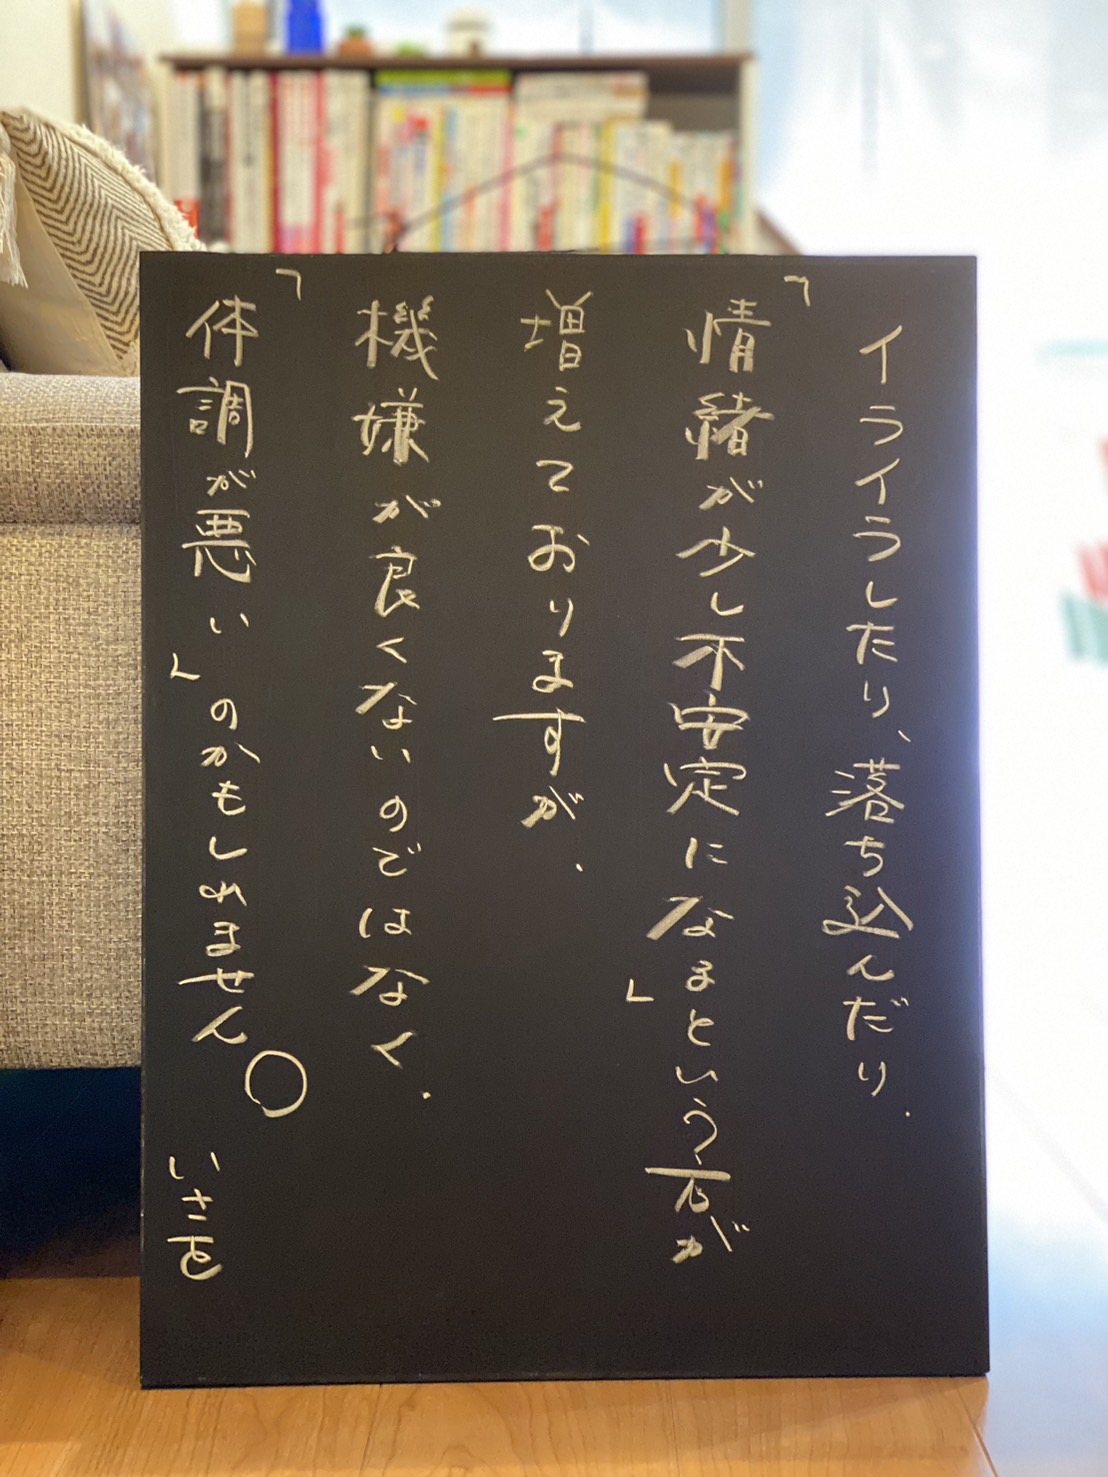 イライラしたり、落ち込んだり、
「情緒が少し不安定になる」という方が
増えておりますが、
機嫌が良くないのではなく、
「体調が悪い」のかもしれません○
いさを